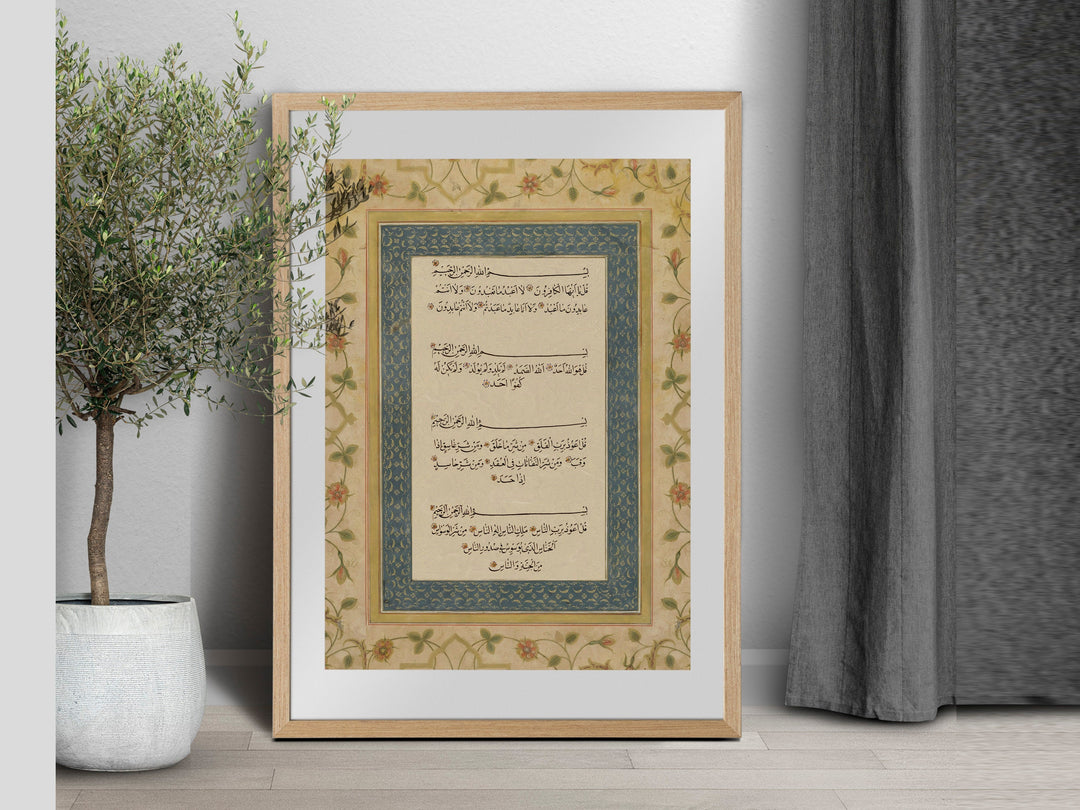 بسم الله الرحمن الرحيم
قل يا ايها الكافرون لا اعبد ما تعبدون ولا انتم
عابدون ما اعبد ولا انا عابد ما عبدتم ولا انتم عابدون
بسم الله الرحمن الرحيم
قل هو الله احد الله الصمد لم يلد ولم يولد ولم يكن له
كفوا احد
بسم الله الرحمن الرحيم
قل اعوذ برب الفلق من شر ما خلق ومن شر غاسق اذا
وقب ومن شر النفاثات في العقد ومن شر حاسد
اذا حسد
بسم الله الرحمن الرحيم
قل اعوذ برب الناس ملك الناس اله الناس من شر الوسواس
الخناس الذي يوسوس في صدور الناس
من الجنة والناس